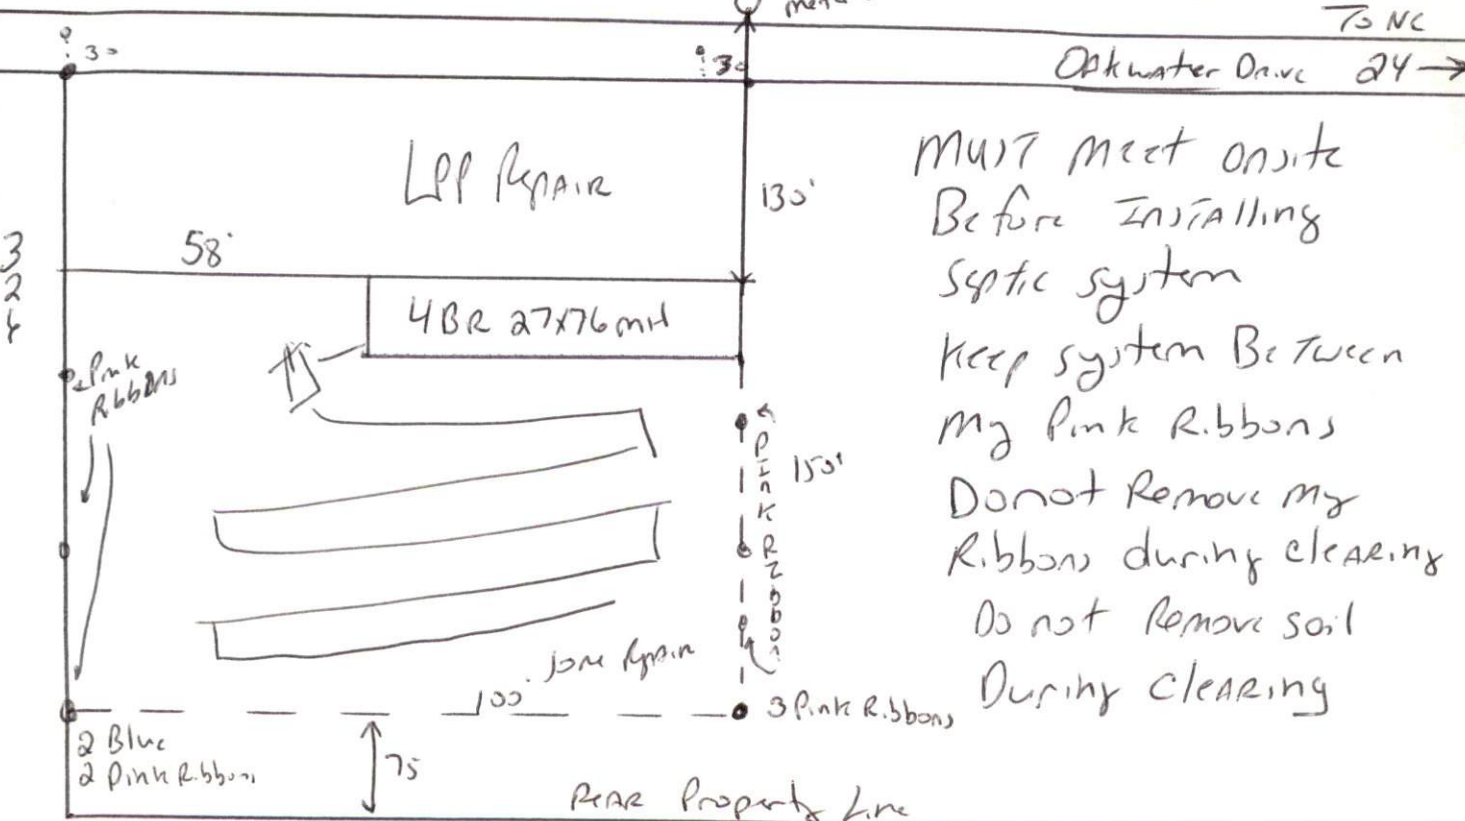 To NC
30
30
Oakwater Drive 24
LPP Repair
130'
58'
324
4BR 27x76 MH
Pink
Ribbons
Pink Ribbons
150'
some Repair
100'
3 Pink Ribbons
2 Blue
2 Pink Ribbons
75
Rear Property Line
Must meet onsite
Before Installing
Septic system
Keep system Between
My Pink Ribbons
Do not Remove My
Ribbons during clearing
Do not Remove soil
During Clearing